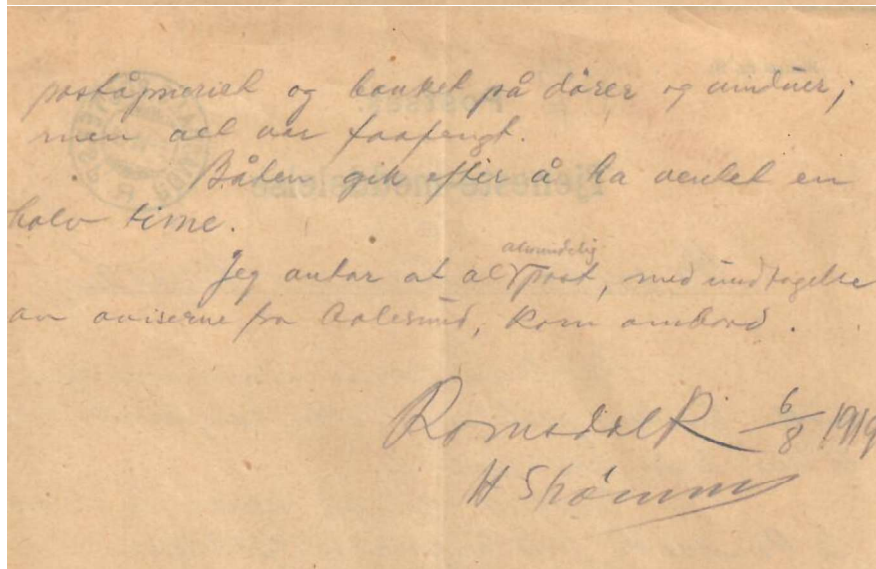 poståpneriet og banket på dører og vinduer;
men det var forfengt.
Båten gik efter å ha ventet en
halv time.
Jeg antar at al almindelig post, med undtagelse
av aviserne fra Aalesund, kom ombord.
Romsdal R 6/8 1919
H Strømm